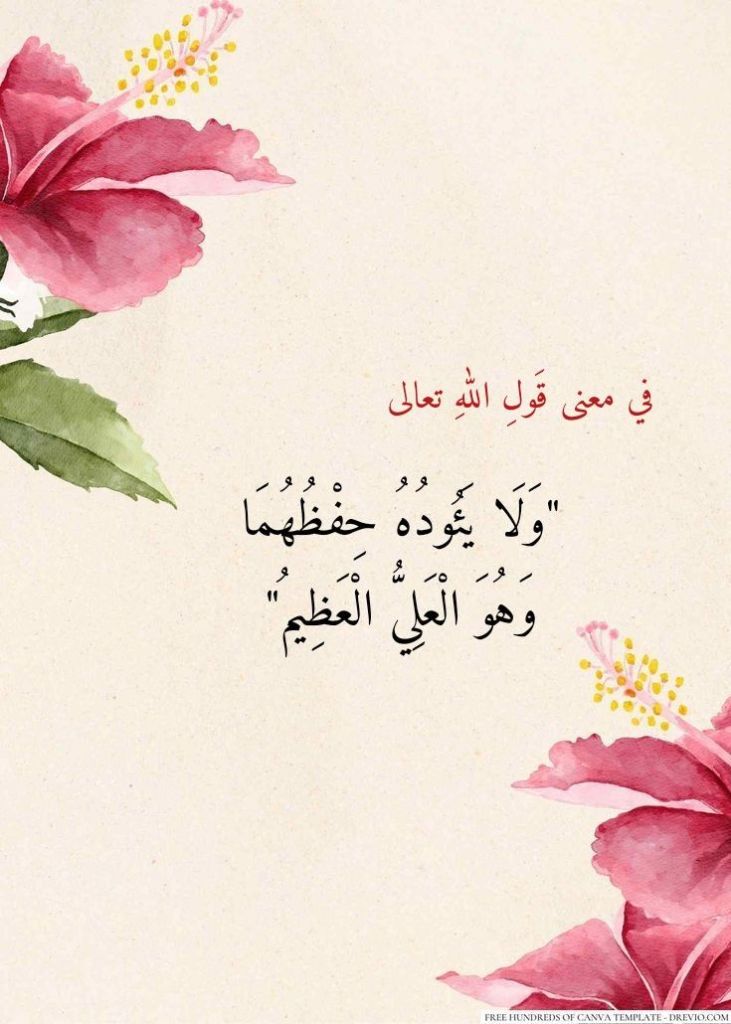 في معنى قَولِ اللهِ تعالى
"وَلَا يَئُودُهُ حِفْظُهُمَا
وَهُوَ الْعَلِيُّ الْعَظِيمُ"
FREE HUNDREDS OF CANVA TEMPLATE - DREVIO.COM